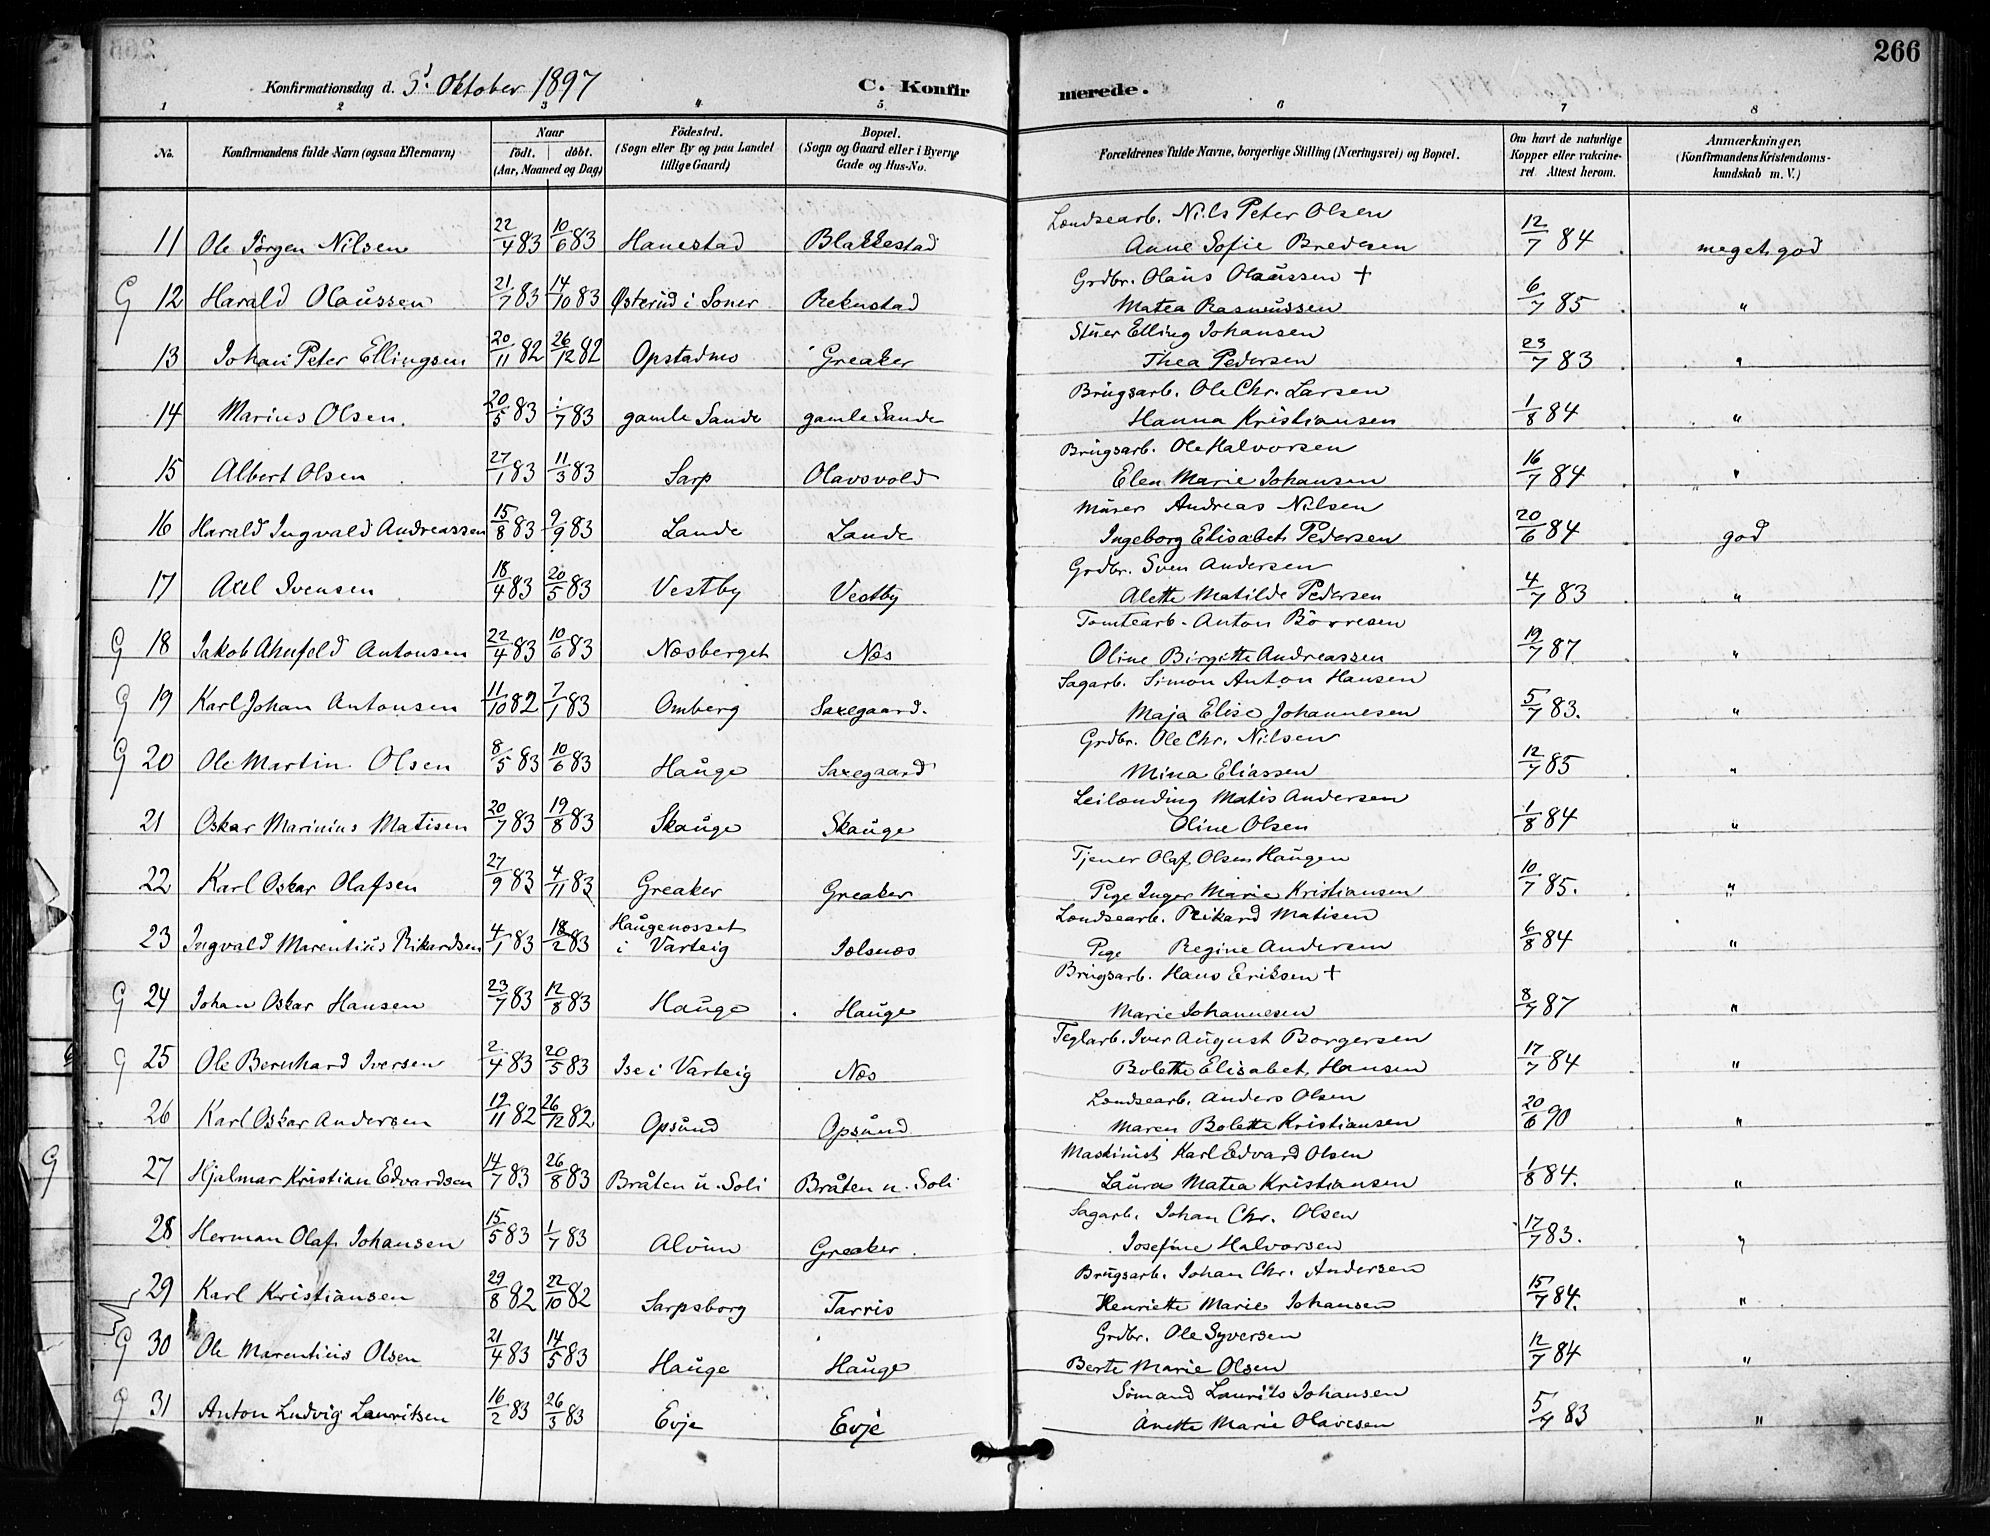 266
Konfirmationsdag d. 3' Oktober 1897 C. Konfirmerede.
1 2 3 4 5 6 7 8
No. Konfirmandens fulde Navn (ogsaa Efternavn) Naar født. døbt. (Aar, Maaned og Dag) Fødested. (Sogn eller By og paa Landet tillige Gaard) Bopæl. (Sogn og Gaard eller i Byerne Gade og Hus-No. Forældrenes fulde Navne, borgerlige Stilling (Næringsvei) og Bopæl. Om havt de naturlige Kopper eller vakcineret. Attest herom. Anmærkninger. (Konfirmandens Kristendomskundskab m. V.)
Landsearb. Nils Peter Olsen
11 Ole Jörgen Nilsen 22/4 83 10/6 83 Hanestad Blakkestad Anne Sofie Bredesen 12/7 84 meget god
Grdbr. Olaus Olaussen +
G 12 Harald Olaussen 21/7 83 14/10 83 Østerud i Soner Rekustad Matea Rasmussen 6/7 85 "
Stuer Elling Johansen
13 Johan Peter Ellingsen 20/11 82 26/12 82 Opstadmo Greaker Thea Pedersen 23/7 83 "
Brugsarb. Ole Chr. Larsen
14 Marius Olsen. 20/5 83 1/7 83 gamle Sande gamle Sande Hanna Kristiansen 1/8 84 "
Brugsarb. Ole Halvorsen
15 Albert Olsen 27/1 83 11/3 83 Sarp Olavsvold Elen Marie Johansen 16/7 84 "
Murer Andreas Nilsen
16 Harald Ingvald Andreassen 15/8 83 9/9 83 Lande Lande Ingeborg Elisabet Pedersen 20/6 84 god
Grdbr. Sven Andersen
17 Axel Svensen 18/4 83 20/5 83 Vestby Vestby Alette Matilde Pedersen 4/7 83 "
Tomtearb. Anton Börresen
G 18 Jakob Ahnfeld Antonsen 22/4 83 10/6 83 Næsberget Næs Oline Birgitte Andreassen 19/7 87 "
Sagarb. Simon Anton Hansen
G 19 Karl Johan Antonsen 11/10 82 7/1 83 Omberg Saxegaard. Maja Elise Johannesen 5/7 83. "
Grdbr. Ole Chr. Nilsen
G 20 Ole Martin Olsen 8/5 83 10/6 83 Hauge Saxegaard Mina Eliassen 12/7 85 "
Leilænding Matis Andersen
21 Oskar Marinius Matisen 20/7 83 19/8 83 Skauge Skauge Oline Olsen 1/8 84 "
Tjener Olaf Olsen Haugen
22 Karl Oskar Olafsen 27/9 83 4/11 83 Greaker Greaker Pige Inger Marie Kristiansen 10/7 85. "
Haugenosset Landsearb. Rikard Matisen
23 Ingvald Marentius Rikardsen 4/1 83 18/2 83 i Varteig Jelsnæs Pige Regine Andersen 6/8 84 "
Brugsarb. Hans Eriksen +
G 24 Johan Oskar Hansen 23/7 83 12/8 83 Hauge Hauge Marie Johannesen 8/7 87 "
Teglarb. Iver August Borgersen
G 25 Ole Bernhard Iversen 2/4 83 20/5 83 Ise i Varteig Næs Bolette Elisabet Hansen 17/7 84 "
Landsearb. Anders Olsen
26 Karl Oskar Andersen 19/11 82 26/12 82 Opsund Opsund Maren Bolette Kristiansen 20/6 90 "
Maskinist Karl Edvard Olsen
G 27 Hjalmar Kristian Edvardsen 14/7 83 26/8 83 Bråten u. Soli Bråten u. Soli Laura Matea Kristiansen 1/8 84. "
Sagarb. Johan Chr. Olsen
28 Herman Olaf Johansen 15/5 83 1/7 83 Alvim Greaker. Josefine Halvorsen 17/7 83. "
Brugsarb. Johan Chr. Andersen
29 Karl Kristiansen 29/8 82 22/10 82 Sarpsborg Tarris Henriette Marie Johansen 15/7 84. "
Grdbr. Ole Syversen
G 30 Ole Marentius Olsen 21/4 83 14/5 83 Hauge Hauge Berte Marie Olsen 12/7 84 "
Sömand Laurits Johansen
G 31 Anton Ludvig Lauritsen 16/2 83 26/3 83 Evje Evje Anette Marie Olavesen 5/7 83 "